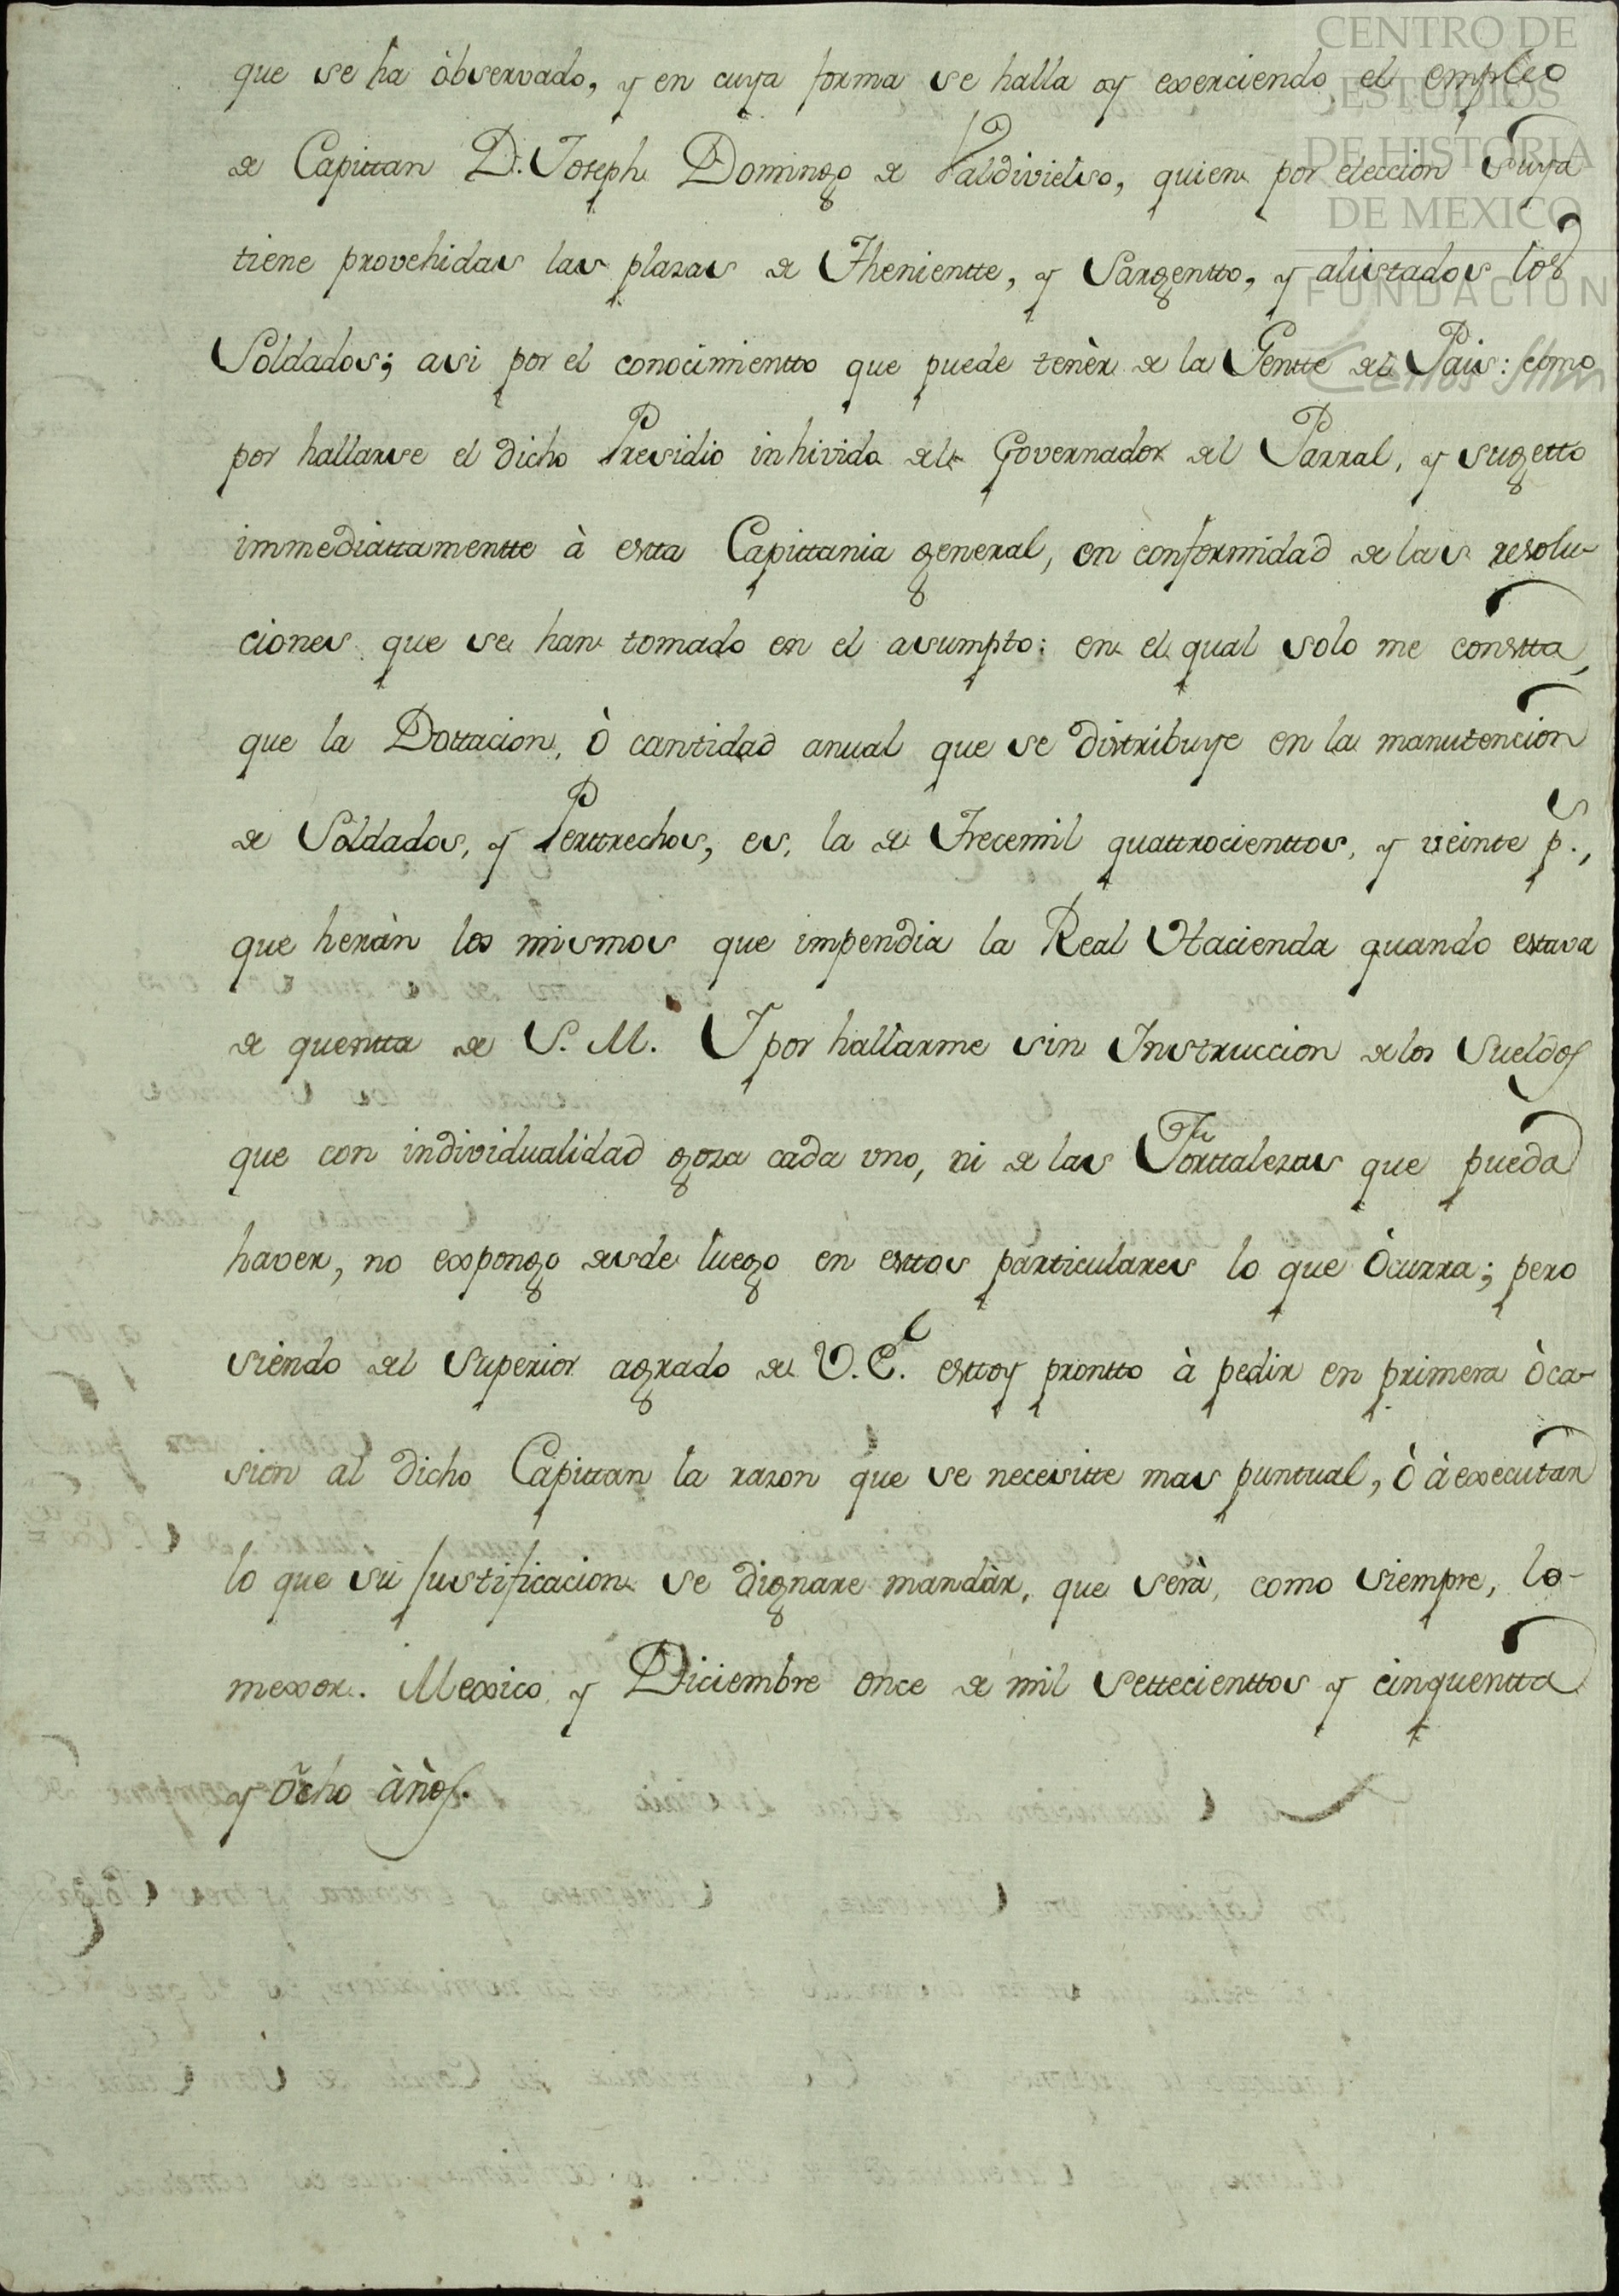 CENTRO DE
ESTUDIOS
DE HISTORIA
DE MEXICO
FUNDACION
Carlos Slim
que se ha òbservado, y en cuya forma se halla oy exerciendo el empleo
de Capittan D. Joseph Domingo de Valdivielso, quien por eleccion suya
tiene provehidas las plazas de Thenientte, y Sargentto, y alistados los
Soldados; asi por el conocimientto que puede tenèr de la Gentte del Pais: como
por hallarse el dicho Presidio inhivido del Governador del Parral, y sugetto
immediattamentte à estta Capittania general, en conformidad de las resolu-
ciones que se han tomado en el asumpto: en el qual solo me constta,
que la Dottacion, ò cantidad anual que se distribuye en la manutencion
de Soldados, y Perttrechos, es, la de Trecemil quattrocienttos, y veinte p.s,
que heràn los mismos que impendia la Real Hacienda quando estava
de quentta de S. M. Y por hallarme sin Instruccion de los Sueldos
que con individualidad goza cada vno, ni de las Forttalezas que pueda
haver, no expongo desde luego en esttos particulares lo que òcurra; pero
siendo del Superior agrado de V. E. esttoy prontto à pedir en primera òca-
sion al dicho Capittan la razon que se necesitte mas puntual, ò à executar
lo que su Justificacion se dignare mandàr, que serà, como siempre, lo
mexor. Mexico, y Diciembre once de mil settecienttos y cinquentta
y òcho àños.